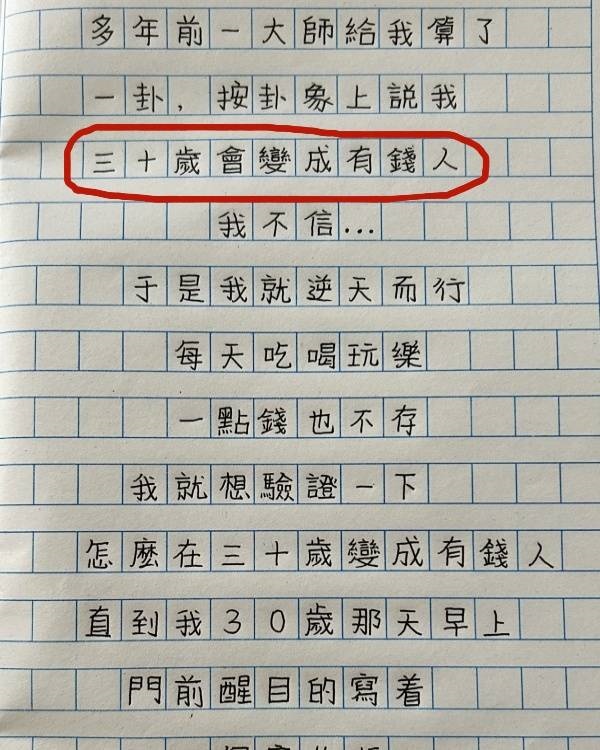 多年前一大師給我算了
一卦，按卦象上說我
三十歲會變成有錢人
我不信...
于是我就逆天而行
每天吃喝玩樂
一點錢也不存
我就想驗證一下
怎麼在三十歲變成有錢人
直到我30歲那天早上
門前醒目的寫着